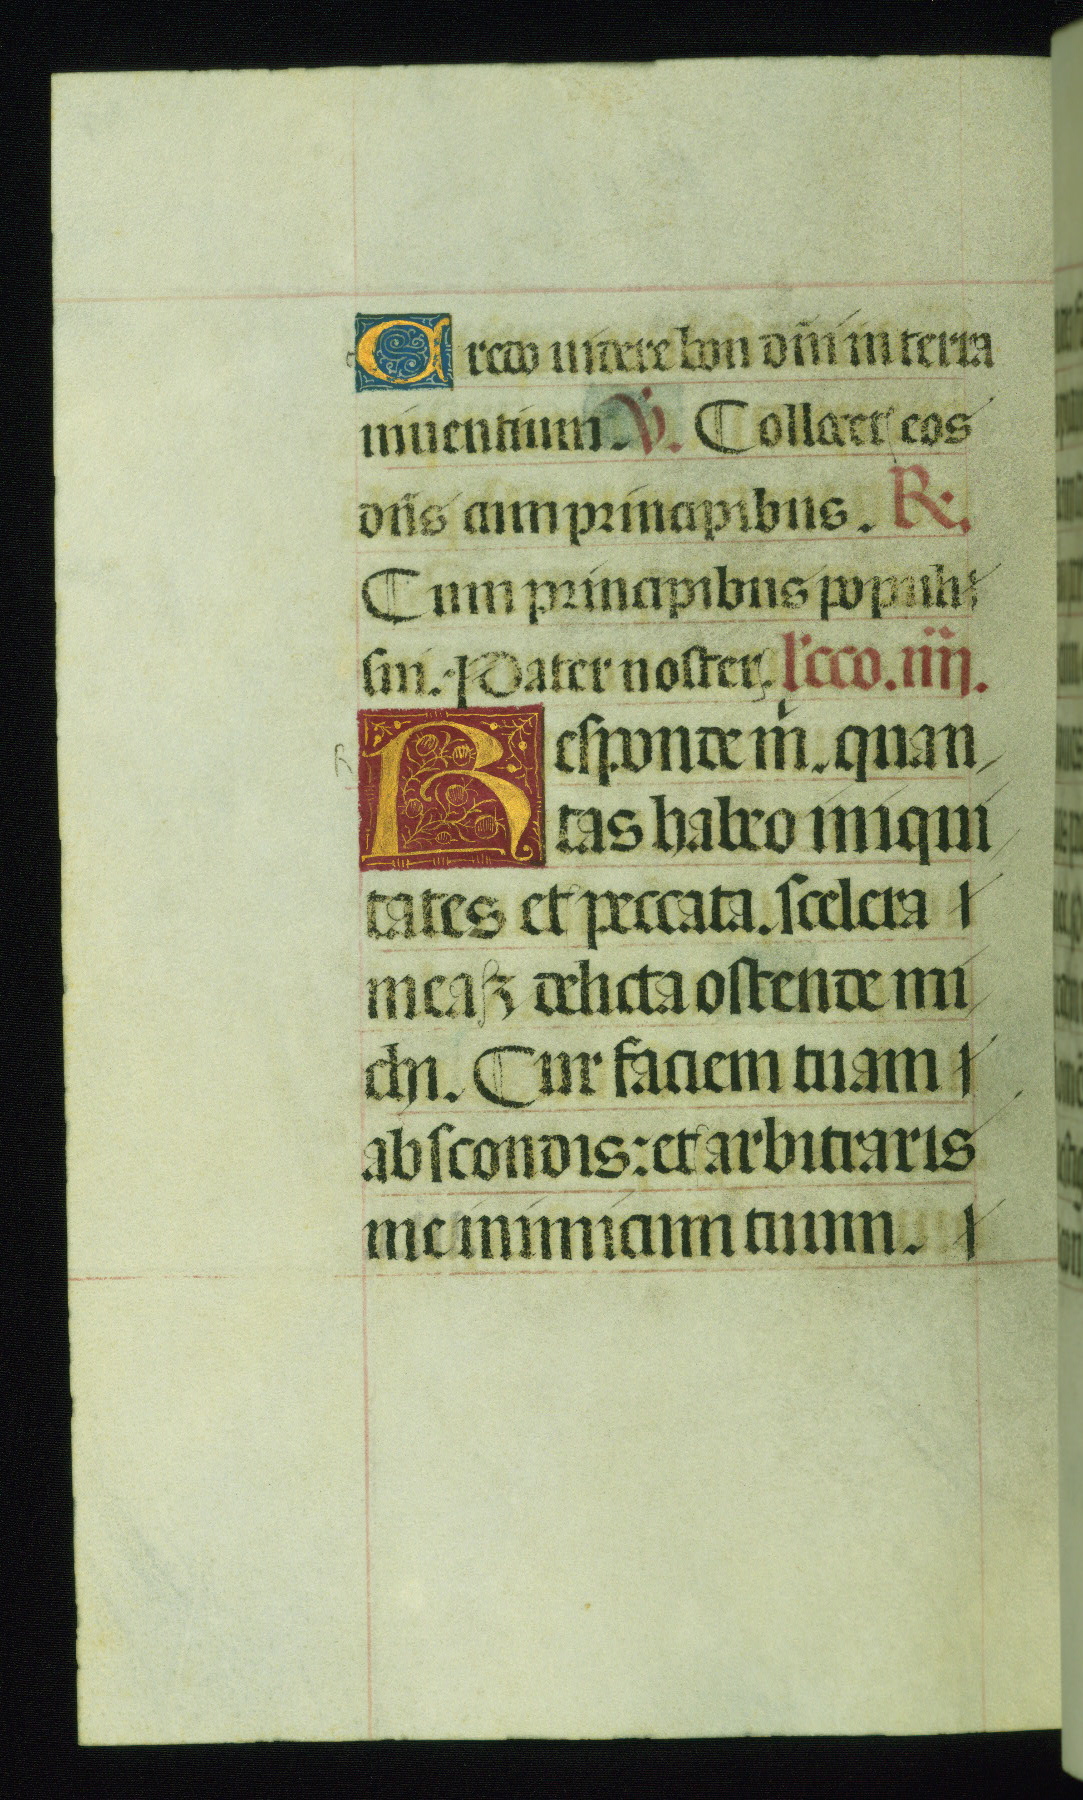 Credo uidere bon dñi in terra
uiuentium. V. Collocet eos
dñs cum principibus. R.
Cum principibus populi
sui. Pater noster. lcco. iiii.
Responde m̃. quan
tas habeo iniqui
tates et peccata. scelera
meaqꝫ delicta ostende mi
chi. Cur faciem tuam
abscondis: et arbitraris
me inimicum tuum.